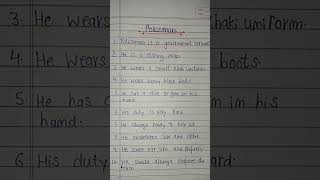 Policeman
1. Policeman is a government servant.
2. He is a strong man.
3. He wears a smart khaki uniform.
4. He wears heavy black boots.
5. He has a stick or gun in his
hand.
6. His duty is very hard.
7. He always ready to help us.
8. He maintains law and order.
9. He saves our life and property.
10. We should always respect the
3. He wears
4. He wears
5. He has a
hand.
6. His duty
khaki uniform.
boots.
in his
hard.